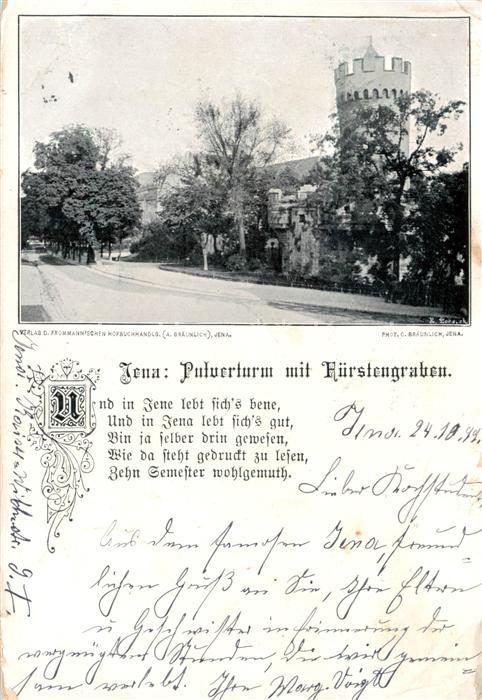 VERLAG D. FROMMANN'SCHEN HOFBUCHHANDLG. (A. BRÄUNLICH), JENA.
PHOT. C. BRÄUNLICH, JENA.
Jena: Pulverturm mit Fürstengraben.
Und in Jene lebt sich's bene,
Und in Jena lebt sich's gut,
Bin ja selber drin gewesen,
Wie da steht gedruckt zu lesen,
Zehn Semester wohlgemuth.
Jena. 24.10.99.
Lieber
Aus dem famosen Jena, freund-
lichen Gruß an Sie, Ihre Eltern
u Geschwister in Erinnerung der
vergnügten Stunden, die wir gemein-
sam verlebt. Ihre Marg. Voigt